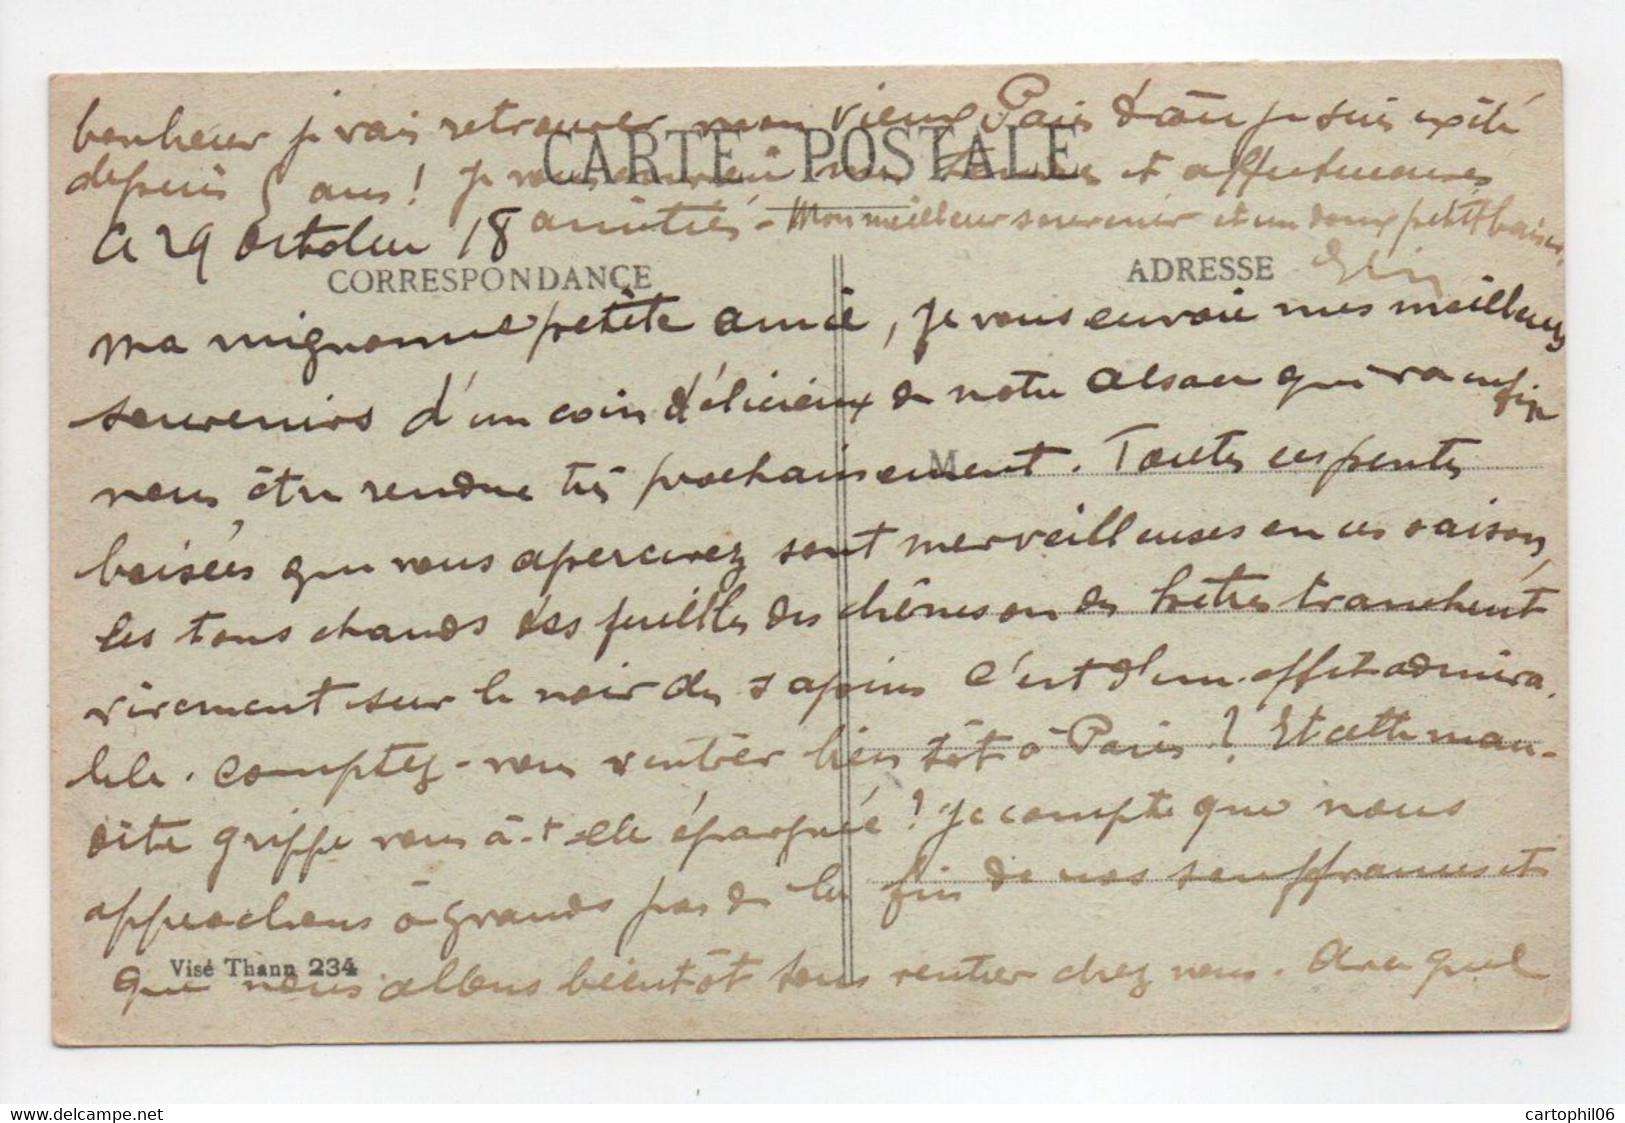 bonheur je vais retrouver mon vieux Paris d'où je suis exilé
depuis 5 ans ! Je vous envoie mes tendres et affectueuses
CARTE POSTALE
Ce 29 Octobre 18 amitiés - Mon meilleur souvenir et un doux petit baiser,
CORRESPONDANCE
ADRESSE
Ma mignonne petite amie, je vous envoie mes meilleurs
souvenirs d'un coin délicieux de notre Alsace qui va enfin
nous être rendue très prochainement. Toutes ces pentes
M
boisées que vous apercevez sont merveilleuses en ces saison,
les tons chauds des feuilles des chênes ou des hêtres tranchent
vivement sur le noir des sapins c'est d'un effet admira.
ble. Comptez-vous rentrer bientôt à Paris ? Et cette mau-
dite grippe vous a-t-elle épargnée ? Je compte que nous
approchons à grands pas de la fin de nos souffrances et
Visé Thann 234
que nous allons bientôt tous rentrer chez nous. Avec quel
www.delcampe.net
cartophil06